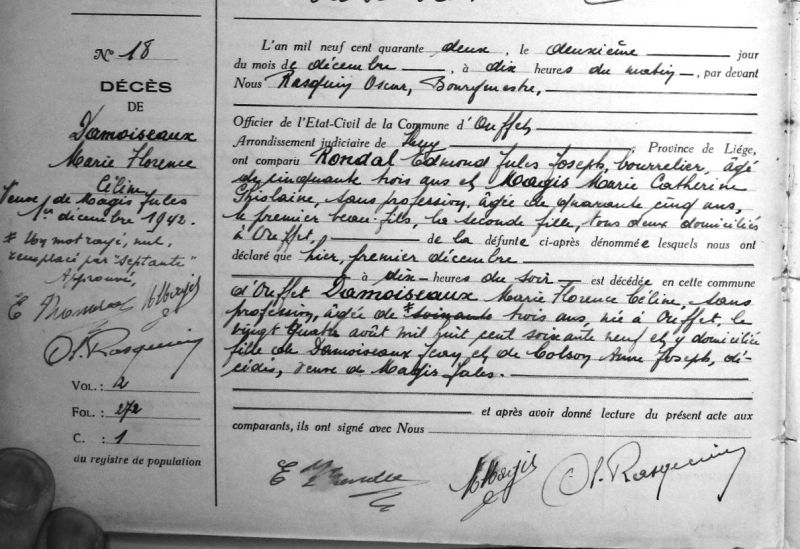 N° 18
DÉCÈS
DE
Damoiseaux
Marie Florence
Céline
Veuve de Magis Jules
1er décembre 1942.
* Un mot rayé, nul,
remplacé par "septante"
Approuvé,
E Rondal MMagis
O. Rasquin
VOL. : 2
FOL. : 272
C. : 1
du registre de population
L'an mil neuf cent quarante deux, le deuxième jour
du mois de décembre, à dix heures du matin, par devant
Nous Rasquin Oscar, Bourgmestre,
Officier de l'Etat-Civil de la Commune d'Ouffet
Arrondissement judiciaire de Huy, Province de Liége,
ont comparu Rondal Edmond Jules Joseph, bourrelier, âgé
de cinquante trois ans et Magis Marie Catherine
Ghislaine, sans profession, âgée de quarante cinq ans,
le premier beau-fils, la seconde fille, tous deux domiciliés
à Ouffet, de la défunte ci-après dénommée lesquels nous ont
déclaré que hier, premier décembre
à dix heures du soir est décédée en cette commune
d'Ouffet Damoiseaux Marie Florence Céline, sans
profession, âgée de * soixante trois ans, née à Ouffet, le
vingt quatre août mil huit cent soixante neuf et y domiciliée
fille de Damoiseaux Jean et de Colson Anne Joseph, dé-
cédés, veuve de Magis Jules.
et après avoir donné lecture du présent acte aux
comparants, ils ont signé avec Nous
E Rondal MMagis O. Rasquin